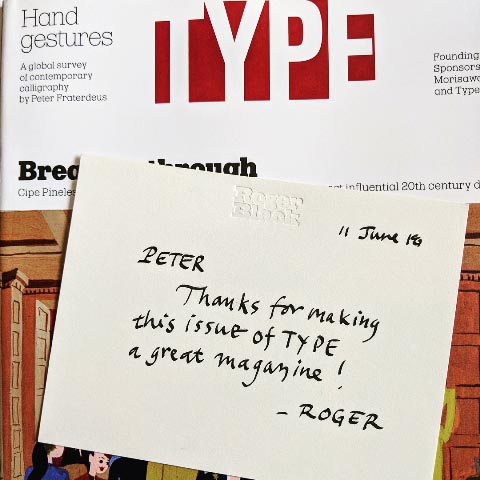 Hand
gestures
A global survey
of contemporary
calligraphy
by Peter Fraterdeus
TYPE
Founding
Sponsors
Morisawa
and Type
through
Cipe Pineles
influential 20th century d
Roger
Black
11 June 19
PETER
Thanks for making
this issue of TYPE
a great magazine!
– ROGER